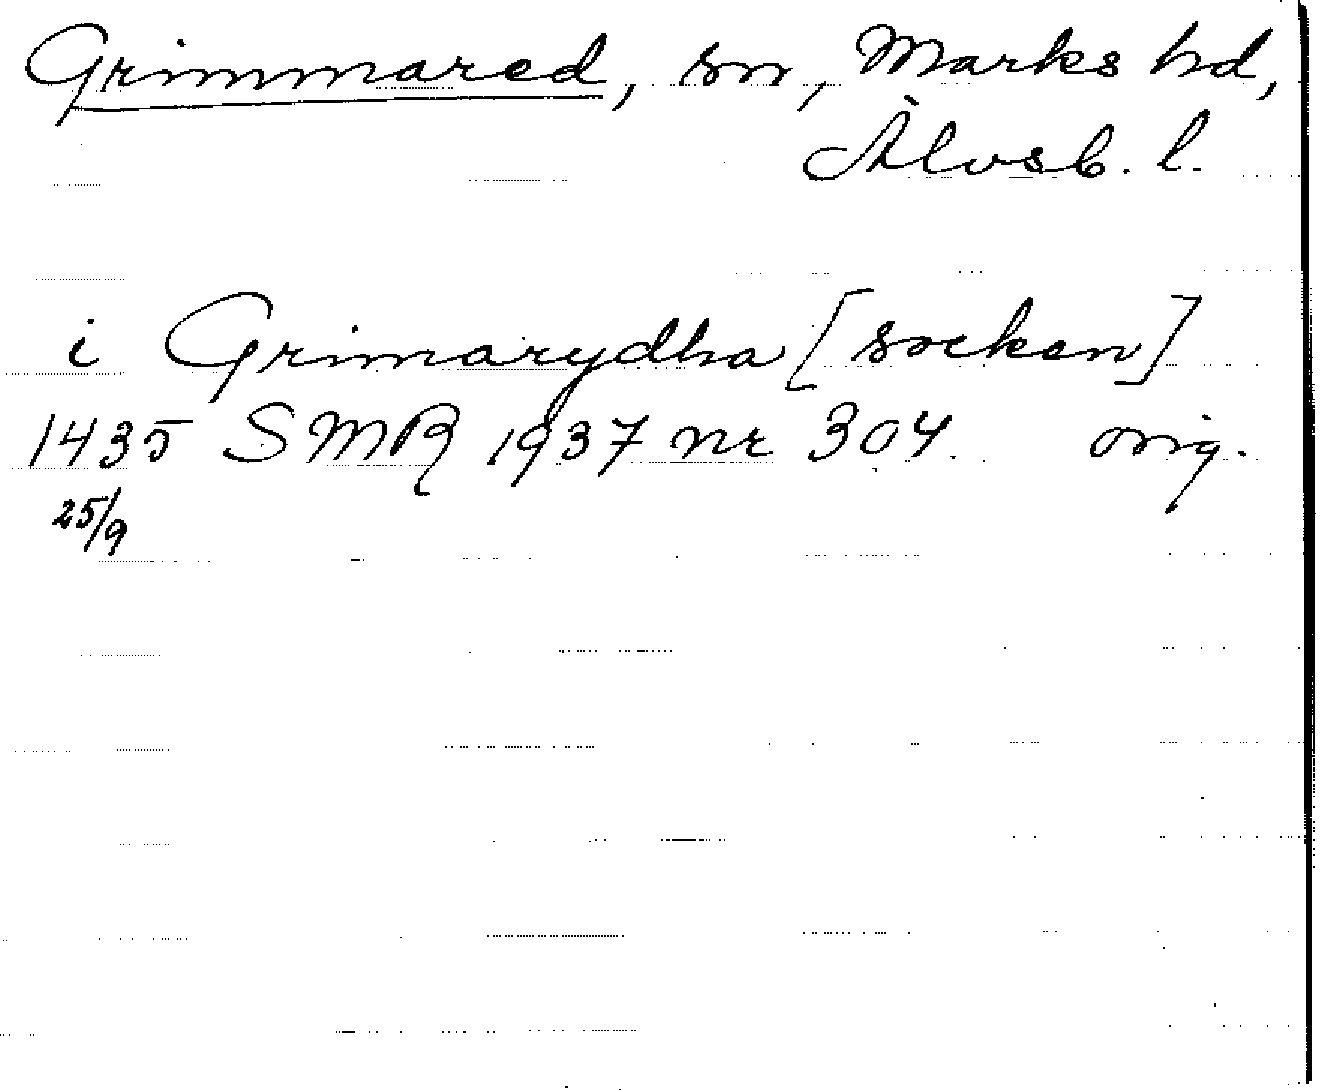 Grimmared, sn, Marks hd,
Älvsb. l.
i Grimarydha [socken]
1435 SMR 1937 nr 304 orig.
25/9